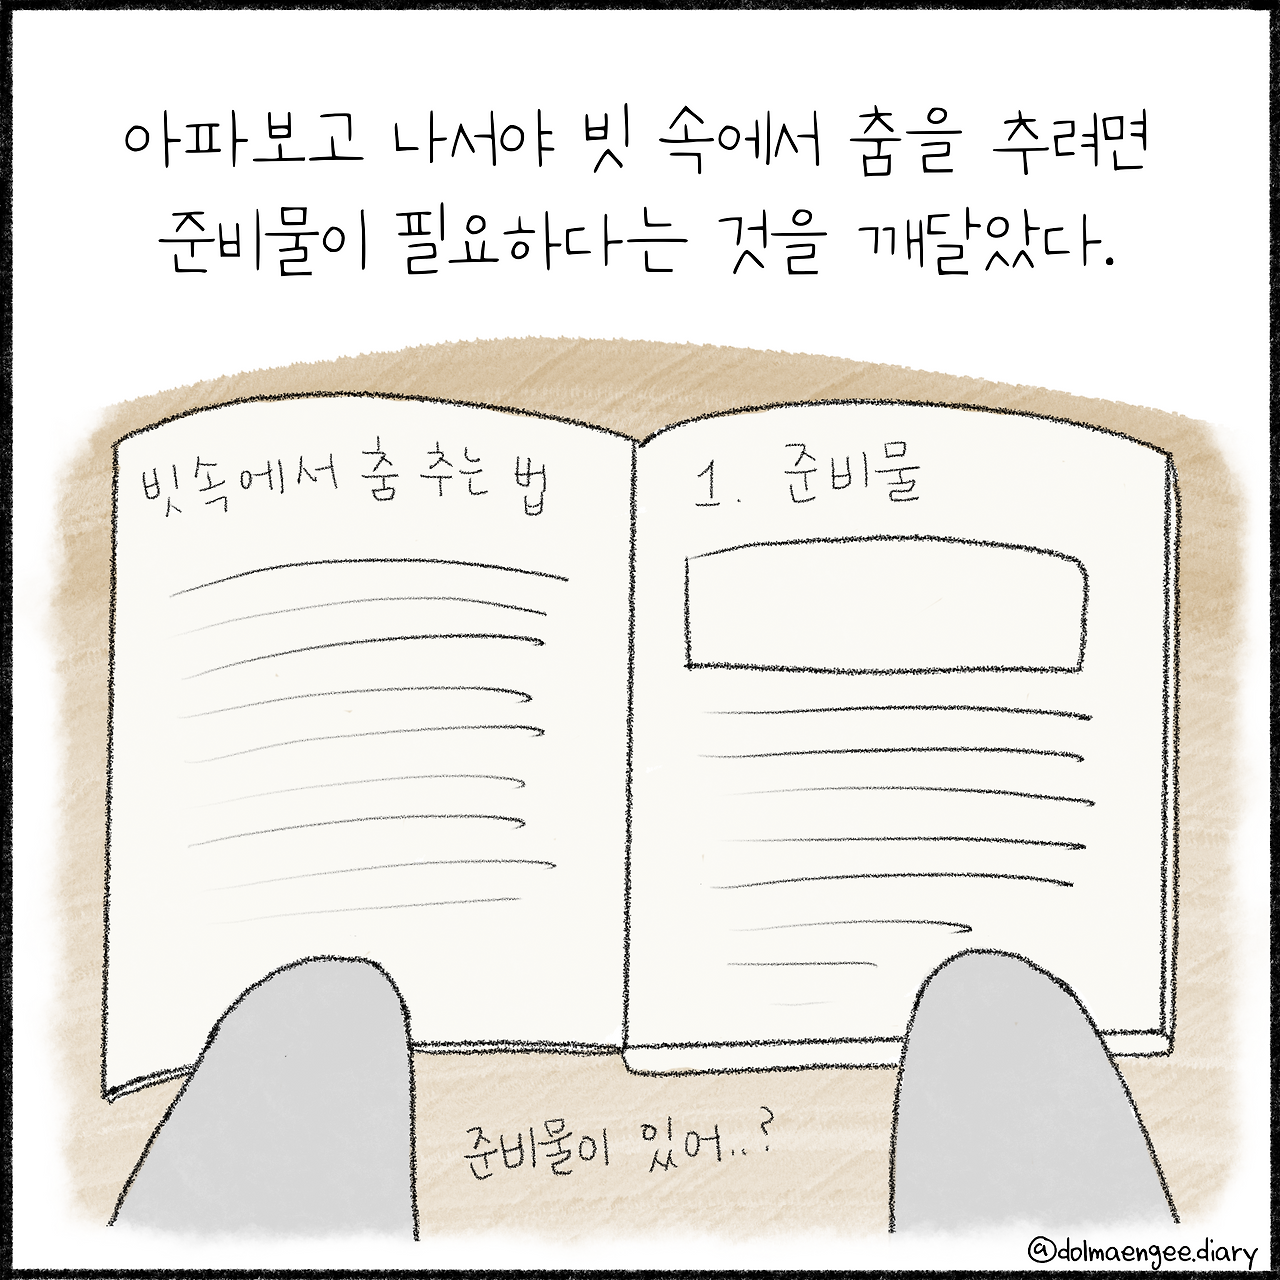 아파보고 나서야 빗 속에서 춤을 추려면
준비물이 필요하다는 것을 깨달았다.
빗속에서 춤 추는 법
1. 준비물
준비물이 있어..?
@dolmaengee.diary